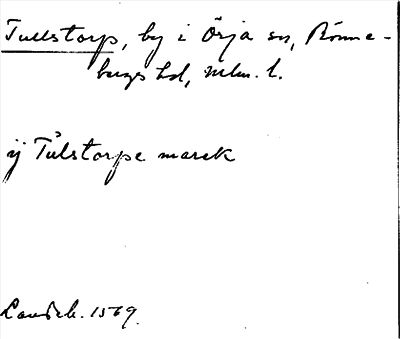 Tullstorp, by i Örja sn, Rönne-
bergs hd, Mlm. l.
ij Tůlstorpe marck
Landsb. 1569.